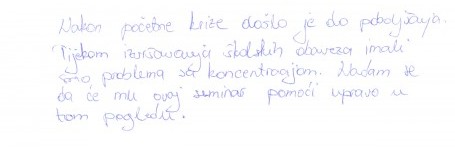 Nakon početne krize došlo je do poboljšanja.
Tijekom izvršavanja školskih obaveza imali
smo problema sa koncentracijom. Nadam se
da će mu ovaj seminar pomoći upravo u
tom pogledu.